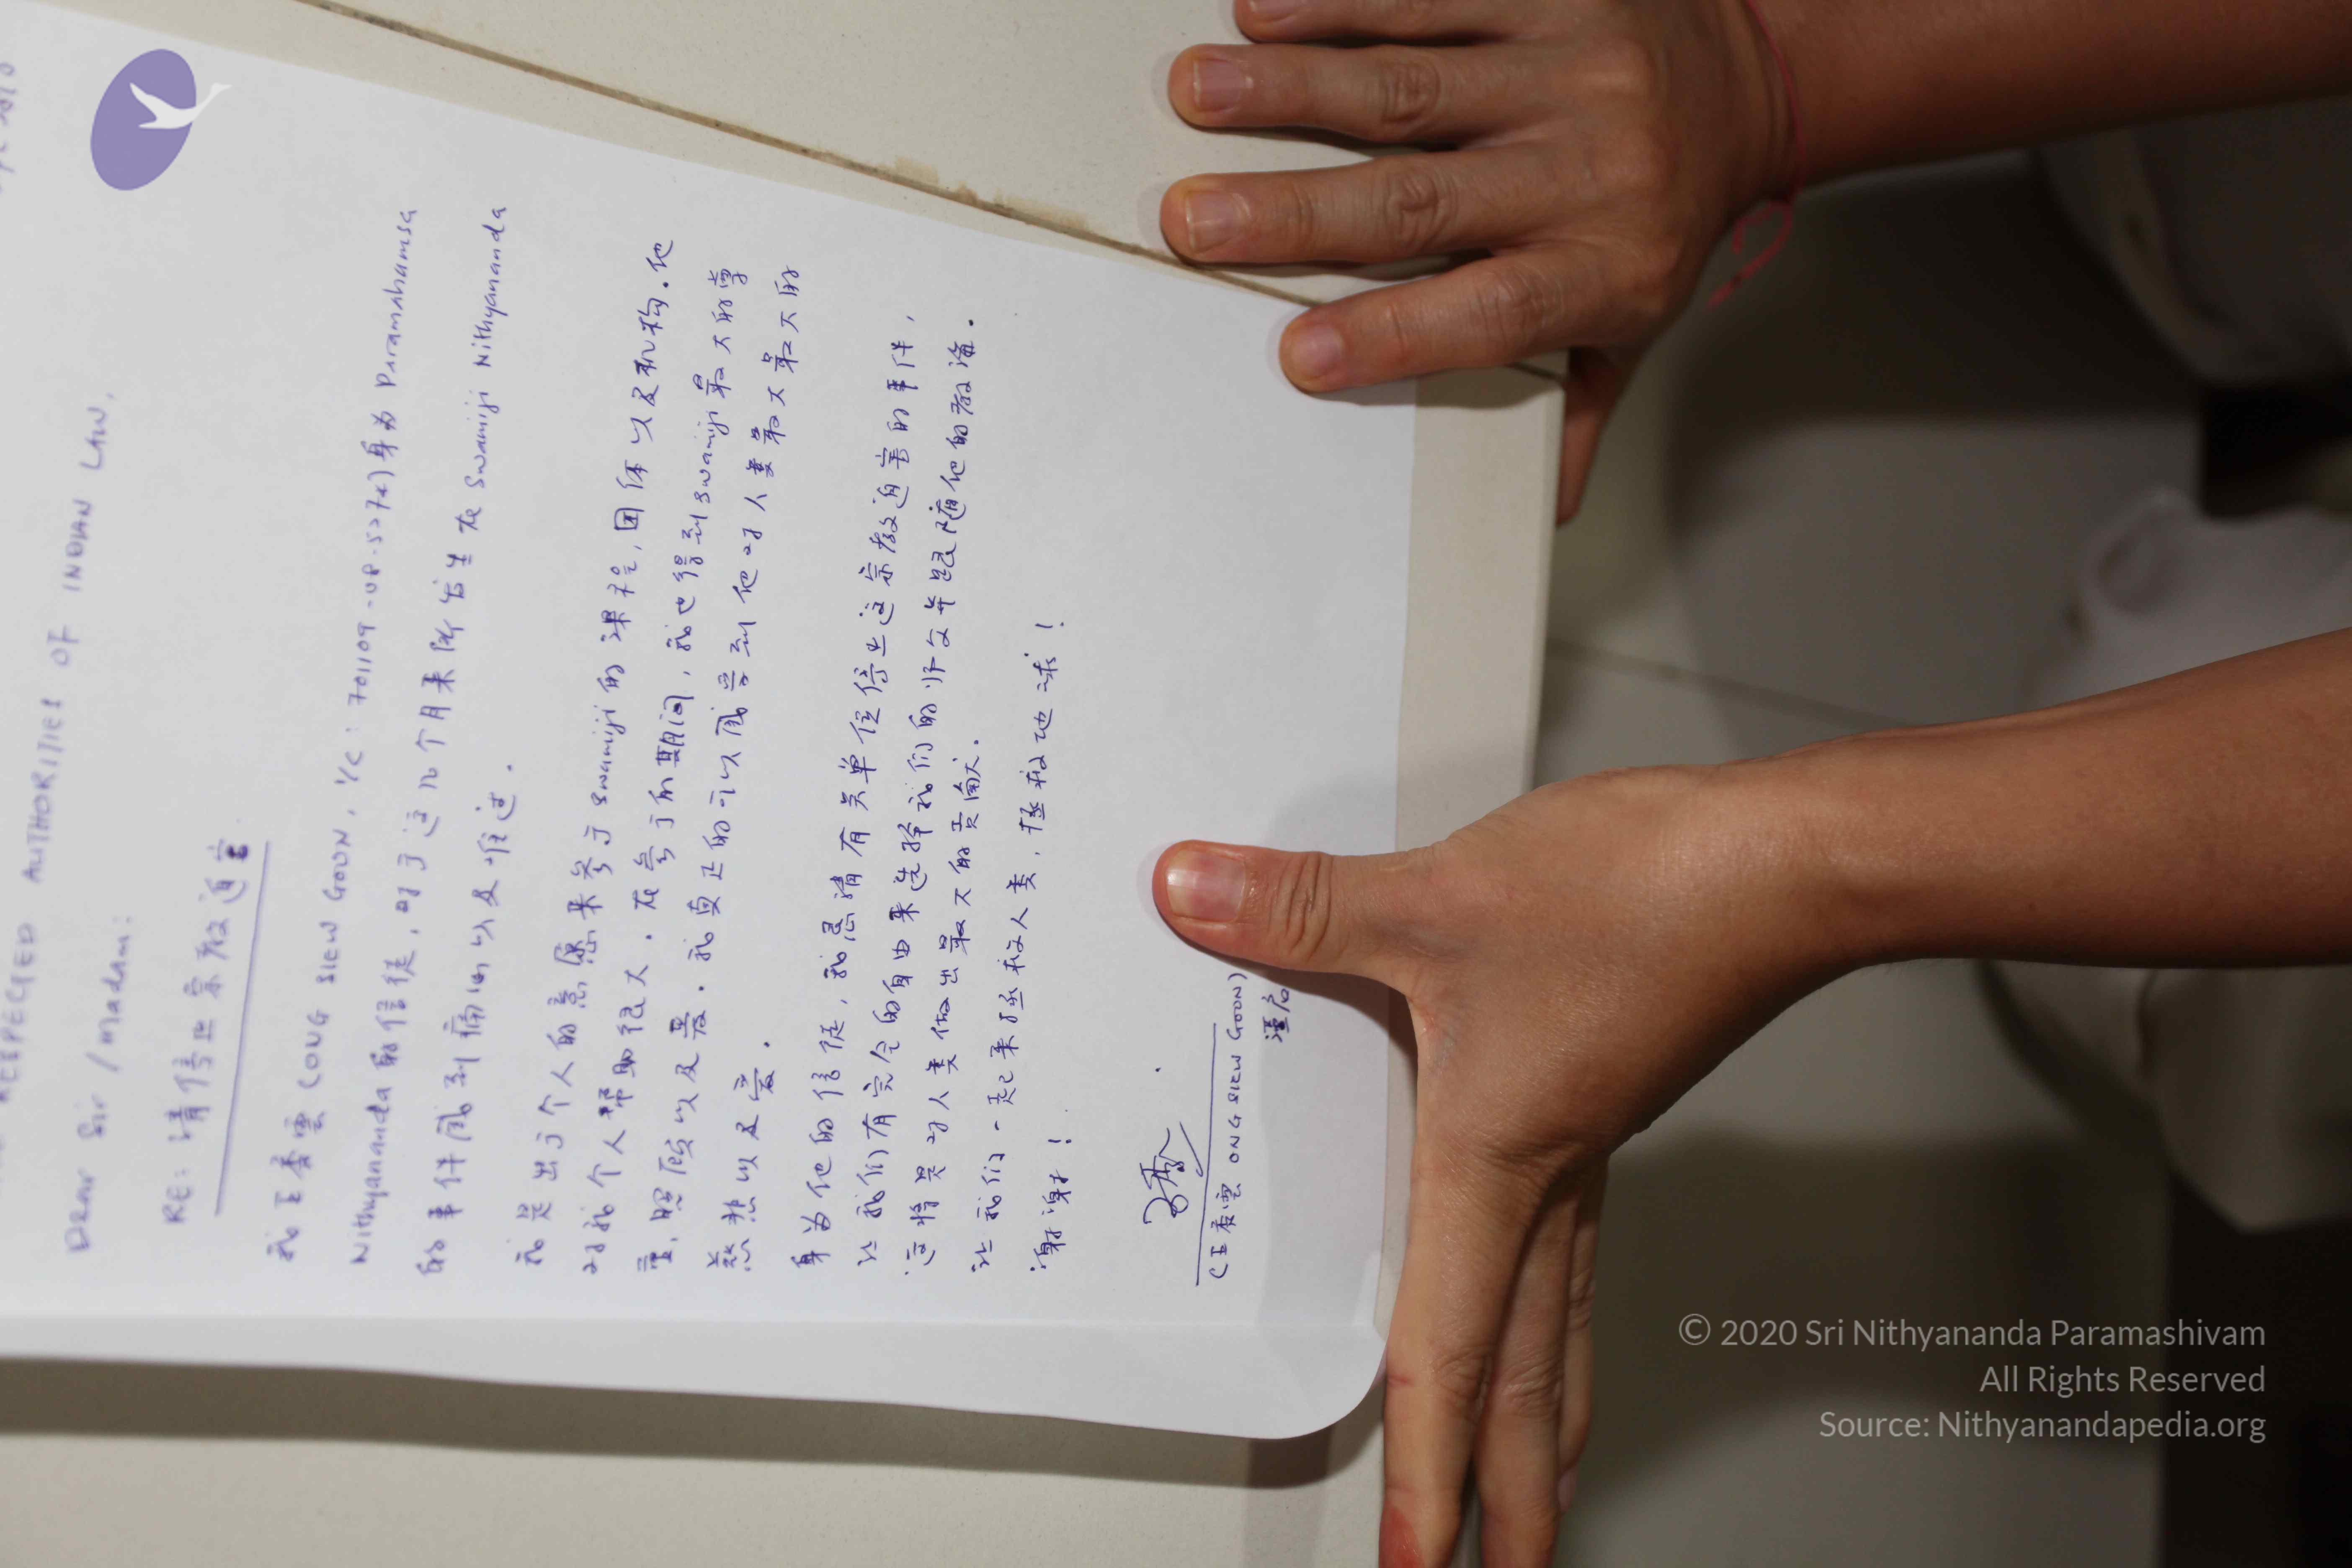 RESPECTED AUTHORITIES OF INDIAN LAW,
Dear Sir / Madam:
RE: 请停止宗教迫害.
我王秀雲 (ONG SIEW GOON, I/C: 701109-08-5)身为 Paramahamsa
Nithyananda 的信徒, 对于这几个月来所发生在 Swamiji Nithyananda
的事件感到痛心以及难过.
我是出于个人的意愿来参于 Swamiji 的课程, 团体以及机构. 他
对我个人帮助很大. 在参于的期间, 我也得到 Swamiji 最大的尊
重, 照顾以及爱. 我真正的可以感受到他对人类最大最大的
慈悲以及爱.
身为他的信徒, 我恳请有关单位停止这宗教迫害的事件,
让我们有完全的自由来选择我们的师父并跟随他的教诲.
这将是对人类做出最大的贡献.
让我们一起来拯救人类, 拯救地球!
谢谢!
(王秀雲 ONG SIEW GOON)
谨启
© 2020 Sri Nithyananda Paramashivam
All Rights Reserved
Source: Nithyanandapedia.org